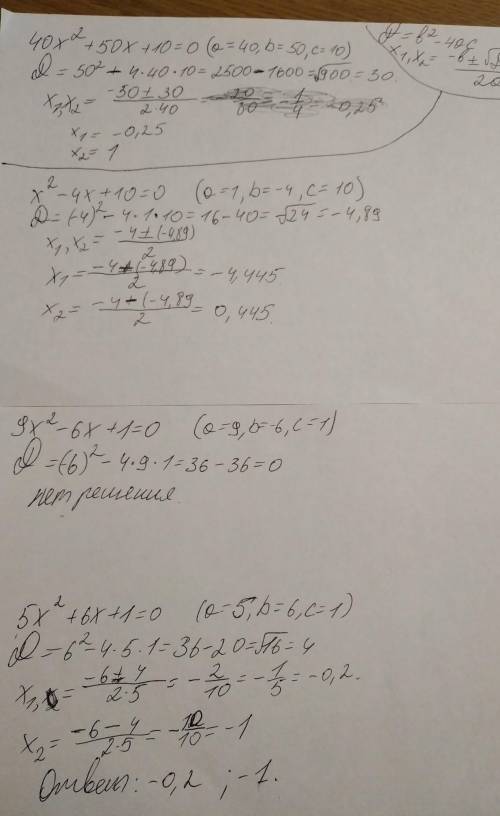 40x² + 50x + 10 = 0 (a = 40, b = 50, c = 10)
D = b² - 4ac
D = 50² - 4·40·10 = 2500 - 1600 = √900 = 30
x₁,x₂ = -b ± √
2a
x₁,x₂ = -30 ± 30 / 2·40 = -20/80 = -1/4 = -0,25
x₁ = -0,25
x₂ = 1
x² - 4x + 10 = 0 (a = 1, b = -4, c = 10)
D = (-4)² - 4·1·10 = 16 - 40 = √24 = -4,89
x₁,x₂ = -4 ± (-4,89) / 2
x₁ = -4 + (-4,89) / 2 = -4,445
x₂ = -4 - (-4,89 / 2 = 0,445
9x² - 6x + 1 = 0 (a = 9, b = -6, c = 1)
D = (-6)² - 4·9·1 = 36 - 36 = 0
нет решения
5x² + 6x + 1 = 0 (a = 5, b = 6, c = 1)
D = 6² - 4·5·1 = 36 - 20 = √16 = 4
x₁, = -6 + 4 / 2·5 = -2/10 = -1/5 = -0,2.
x₂ = -6 - 4 / 2·5 = -10/10 = -1
Ответ: -0,2 ; -1.